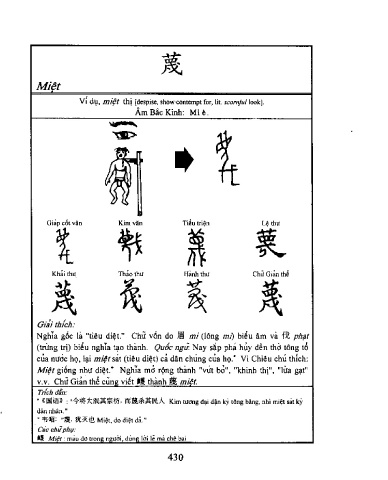 蔑
Miệt
Ví dụ, miệt thị [despise, show contempt for, lit. scornful look].
Âm Bắc Kinh: Mi è.
Giáp cốt văn Kim văn Tiểu triện Lệ thư
Khải thư Thảo thư Hành thư Chữ Giản thể
蔑 蔑 蔑 蔑
Giải thích:
Nghĩa gốc là "tiêu diệt." Chữ vốn do 眉 mi (lông mi) biểu âm và 伐 phạt
(trừng trị) biểu nghĩa tạo thành. Quốc ngữ: Nay sắp phá hủy đền thờ tông tổ
của nước họ, lại miệt sát (tiêu diệt) cả dân chúng của họ." Vi Chiêu chú thích:
Miệt giống như diệt." Nghĩa mở rộng thành "vứt bỏ", "khinh thị", "lừa gạt"
v.v. Chữ Giản thể cũng viết 衊 thành 蔑 miệt.
Trích dẫn:
"《国语》: "今将大泯其宗祊, 而蔑杀其民人 Kim tương đại dận kỳ tông băng, nhi miệt sát kỳ
dân nhân."
" 韦昭: "蔑, 犹灭也 Miệt, do diệt dã."
Các chữ phụ:
衊 Miệt : máu dơ trong người, dùng lời lẽ mà chê bai
430